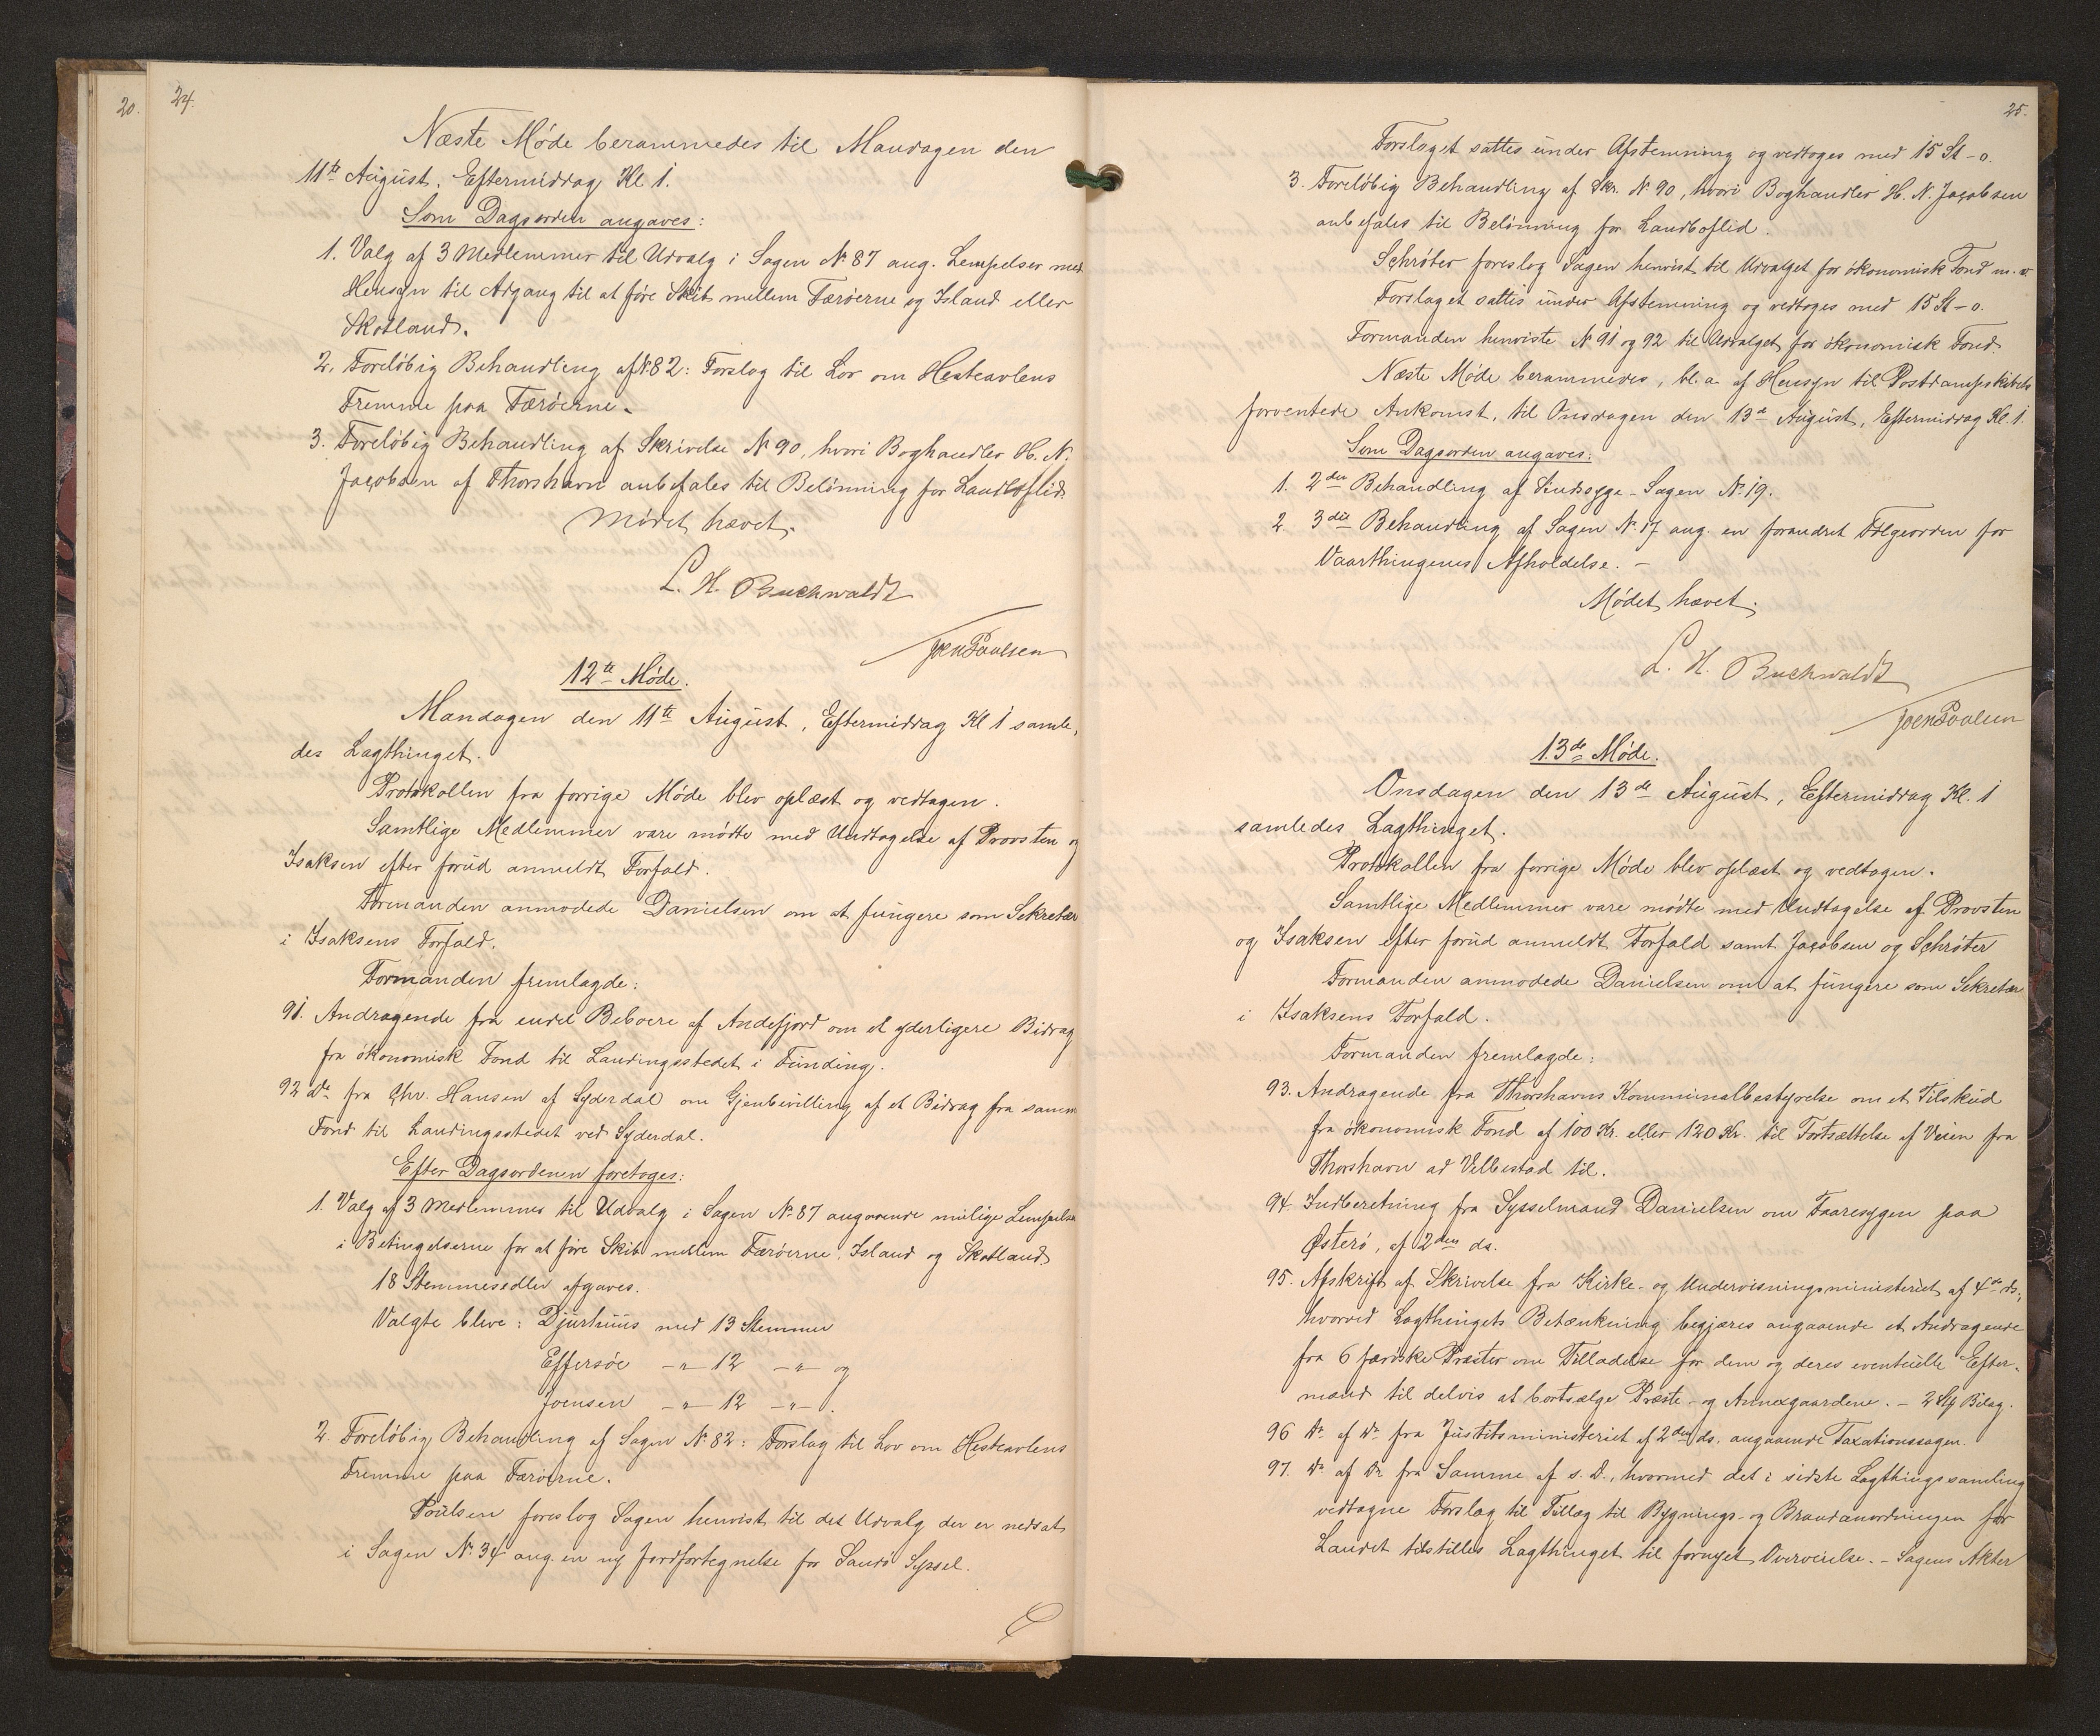 20.
24.
Næste Møde berammedes til Mandagen den
11te August, Eftermiddag Kl 1.
Som Dagsorden angaves:
1. Valg af 3 Medlemmer til Udvalg i Sagen No 87 ang. Lempelser med
Hensyn til Adgang til at före Skib mellem Færöerne og Island eller
Skotland.
2. Forelöbig Behandling af No 82: Forslag til Lov om Hesteavlens
Fremme paa Færöerne.
3. Forelöbig Behandling af Skrivelse No 90, hvori Boghandler H. N.
Jacobsen af Thorshavn anbefales til Belönning for Landboflid
Mødet hævet.
L. H. Buchwaldt
Joen Poulsen
12te Møde.
Mandagen den 11te August, Eftermiddag Kl 1 samle,
des Lagthinget.
Protokollen fra forrige Møde blev oplæst og vedtagen.
Samtlige Medlemmer vare mödte med Undtagelse af Provsten og
Isaksen efter forud anmeldt Forfald.
Formanden anmodede Danielsen om at fungere som Sekretær
i Isaksens Forfald.
Formanden fremlagde:
91. Andragende fra endel Beboere af Andefjord om et yderligere Bidrag
fra ökonomisk Fond til Landingsstedet i Funding.
92 Do fra Chr. Hansen af Syderdal om Gjenbevilling af et Bidrag fra samme
Fond til Landingsstedet ved Syderdal.
Efter Dagsordenen foretoges:
1. Valg af 3 Medlemmer til Udvalg i Sagen No 87 angaaende mulige Lempelser
i Betingelserne for at före Skib mellem Færöerne, Island og Skotland.
18 Stemmesedler afgaves.
Valgte bleve: Djurhuus med 13 Stemmer
Effersöe -"- 12 -"- og
Joensen -"- 12 -"-.
2. Forelöbig Behandling af Sagen No 82: Forslag til Lov om Hesteavlens
Fremme paa Færöerne.
Poulsen foreslog Sagen henvist til det Udvalg der er nedsat
i Sagen No 34 ang. en ny Jordfortegnelse for Sandö Syssel.
25.
Forslaget sattes under Afstemning og vedtoges med 15 St - 0.
3. Forelöbig Behandling af Skr. No 90, hvori Boghandler H. N. Jacobsen
anbefales til Belönning for Landboflid.
Schröter foreslog Sagen henvist til Udvalget for ökonomisk Fond m. v.
Forslaget sattes under Afstemning og vedtoges med 15 St - 0.
Formanden henviste No 91 og 92 til Udvalget for ökonomisk Fond.
Næste Møde berammedes, bl. a. af Hensyn til Postdampskibets
forventede Ankomst, til Onsdagen den 13de August, Eftermiddag Kl. 1.
Som Dagsorden angaves:
1. 2den Behandling af Sindssyge-Sagen No 19.
2. 3die Behandling af Sagen No 17 ang. en forandret Fölgeorden for
Vaarthingenes Afholdelse. -
Mødet hævet.
L. H. Buchwaldt
Joen Poulsen
13de Møde.
Onsdagen den 13de August, Eftermiddag Kl. 1
samledes Lagthinget.
Protokollen fra forrige Møde blev oplæst og vedtagen.
Samtlige Medlemmer vare mödte med Undtagelse af Provsten
og Isaksen efter forud anmeldt Forfald samt Jacobsen og Schröter
Formanden anmodede Danielsen om at fungere som Sekretær
i Isaksens Forfald.
Formanden fremlagde:
93. Andragende fra Thorshavns Kommunalbestyrelse om et Tilskud
fra ökonomisk Fond af 100 Kr. eller 120 Kr. til Fortsættelse af Veien fra
Thorshavn ad Velbestad til.
94. Indberetning fra Sysselmand Danielsen om Faaresygen paa
Österö, af 2den ds.
95. Afskrift af Skrivelse fra Kirke- og Undervisningsministeriet af 4de ds.,
hvorved Lagthingets Betænkning begjæres angaaende et Andragende
fra 6 færöske Præster om Tilladelse for dem og deres eventuelle Efter-
mænd til delvis at bortsælge Præste- og Annexgaardene. - 2 Stk Bilag.
96 Do af Do fra Justitsministeriet af 2den ds. angaaende Taxationssagen.
97. Do af Do fra Samme af s. D., hvormed det i sidste Lagthingssamling
vedtagne Forslag til Tillæg til Bygnings- og Brandanordningen for
Landet tilstilles Lagthinget til fornyet Overveielse. - Sagens Akter